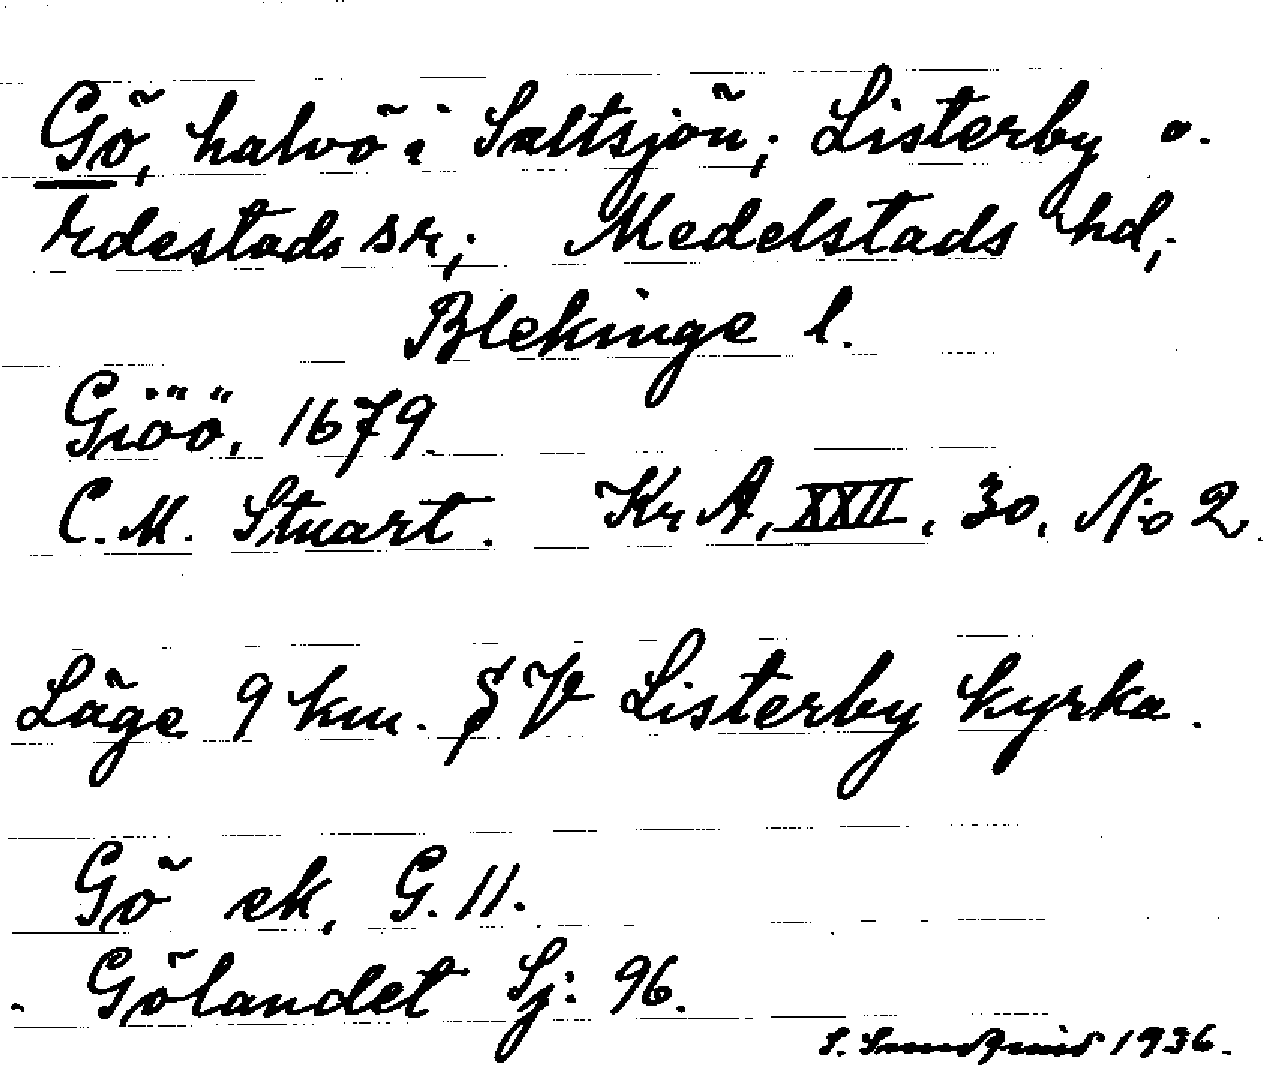 Gö, halvö i Saltsjön; Listerby o.
Edestads sr; Medelstads hd;
Blekinge l.
Giöö, 1679.
C.M. Stuart. Kr A, XXII, 30, No 2.
Läge 9 km. S V Listerby kyrka.
Gö ek, G. 11.
Gölandet Sj: 96.
S. Sundquist 1936.